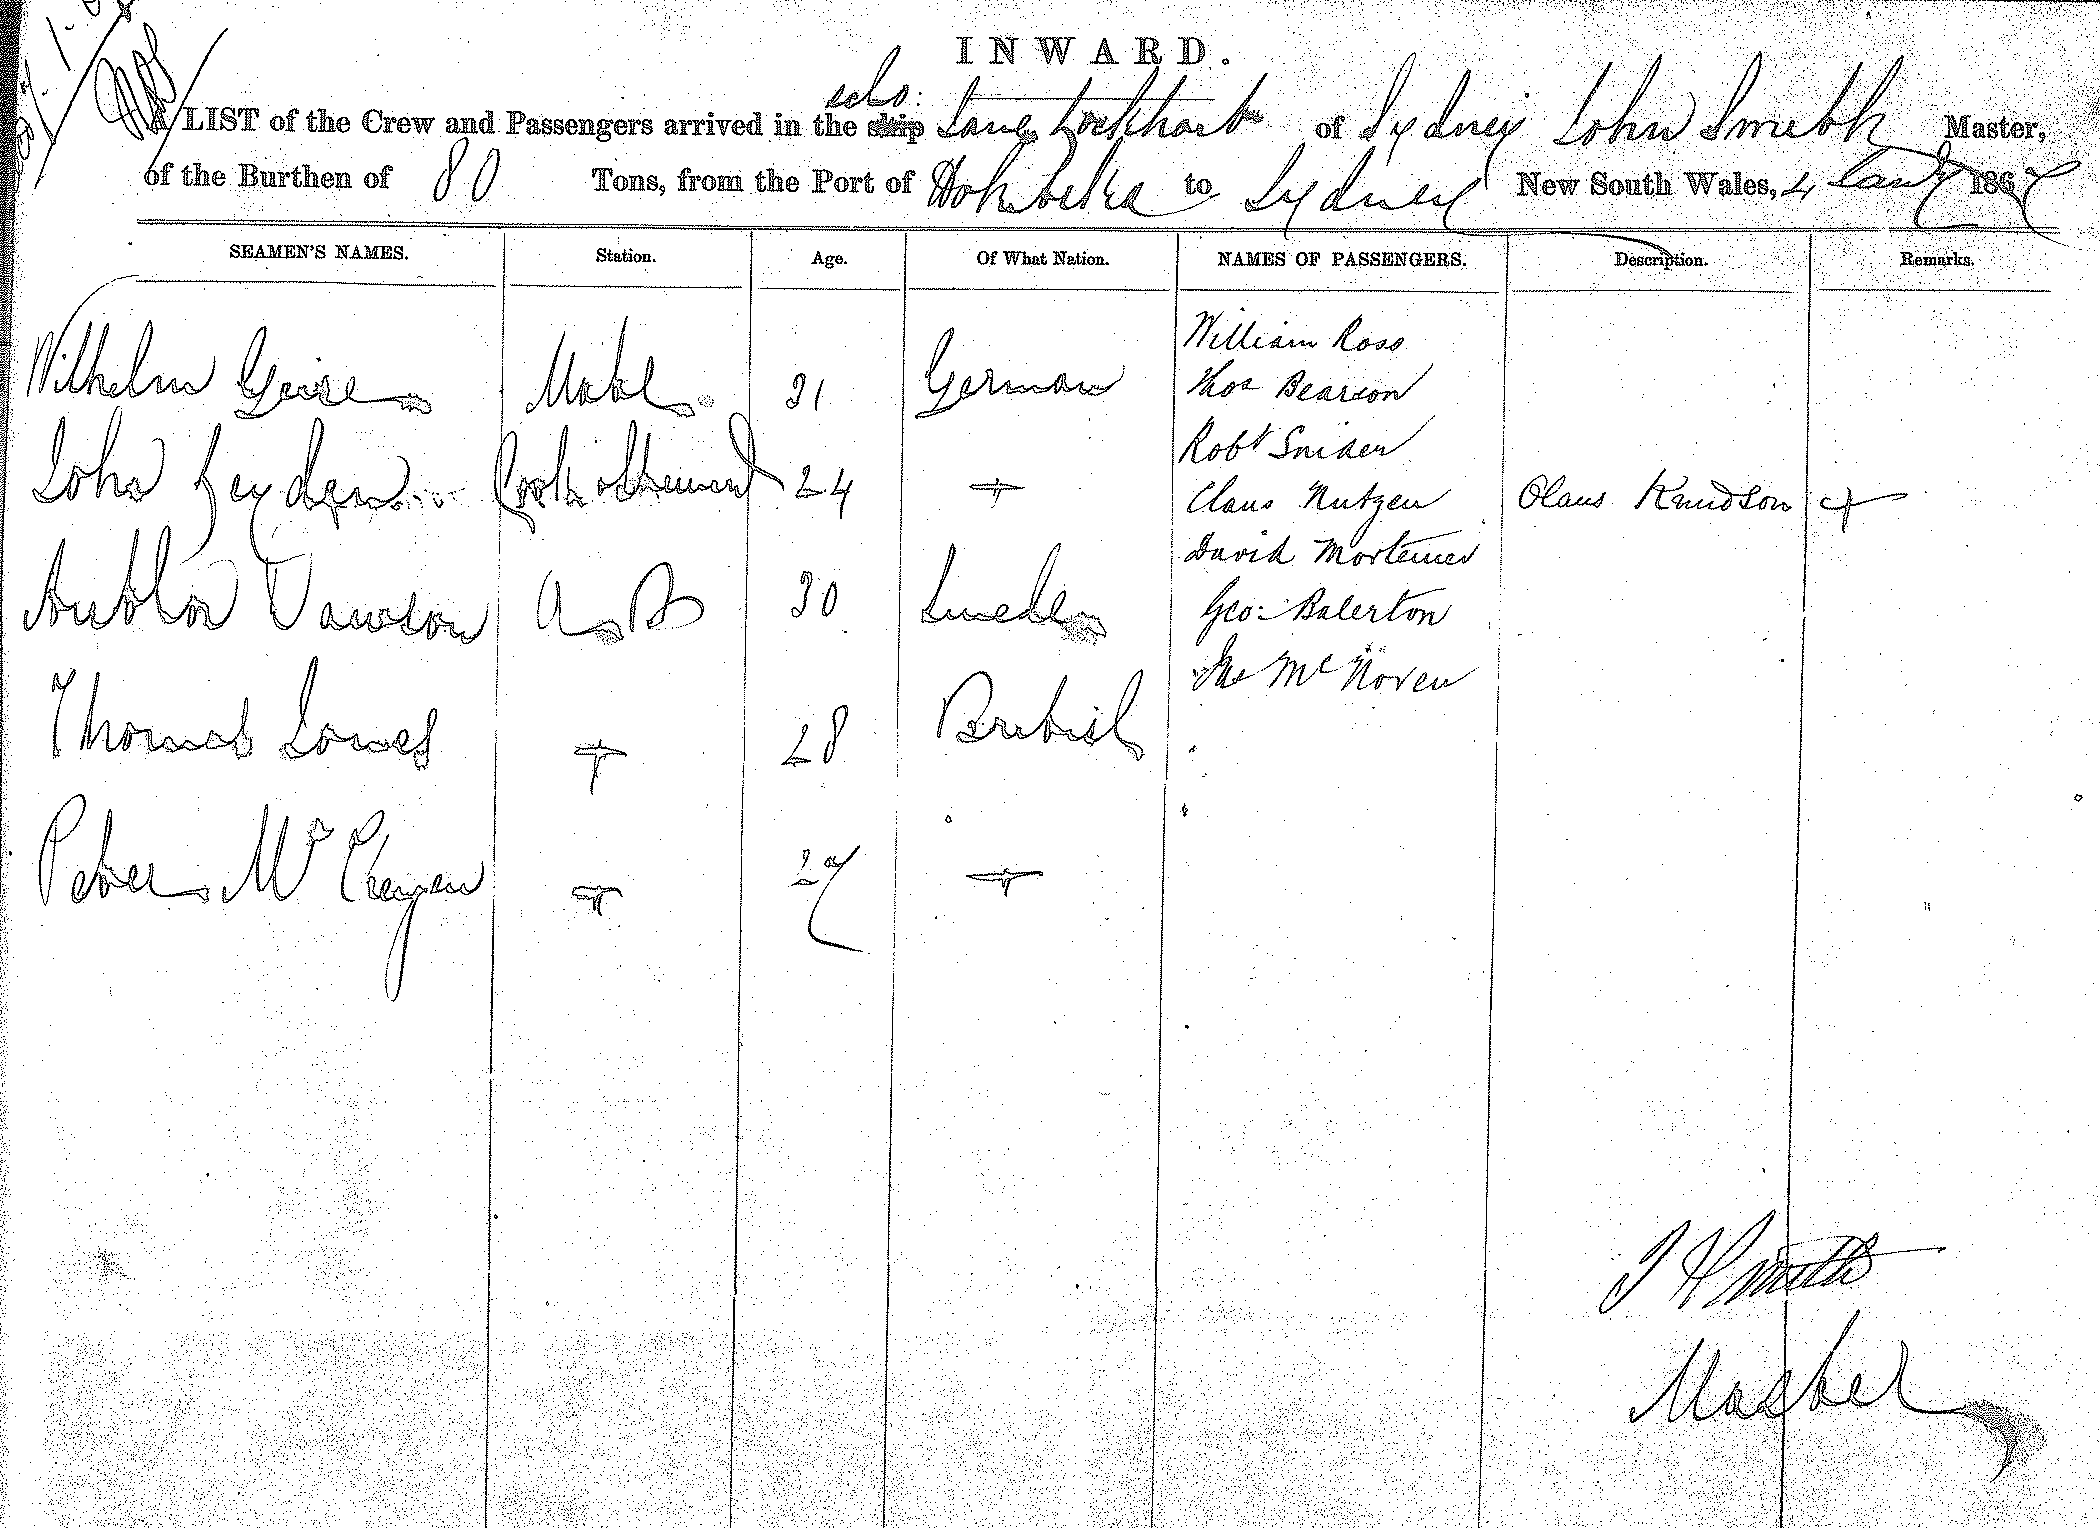 INWARD.
A LIST of the Crew and Passengers arrived in the ship scho: Jane Lockhart of Sydney John Smith Master,
of the Burthen of 80 Tons, from the Port of Hokitika to Sydney New South Wales, 4 Jany 1867
SEAMEN'S NAMES. Station. Age. Of What Nation. NAMES OF PASSENGERS. Description. Remarks.
William Ross
Wilhelm Geise Mate 31 German Thos Bearson
Robt Snider
John Leyden Cook & Steward 24 + Claus Nutzen Olaus Knudson +
David Mortemer
Arthor Dawson A B 30 Sweden Geo: Balerton
Mc Noven
Thomas Jones + 28 British
Peter Mc 27 +
J H Smith
Master